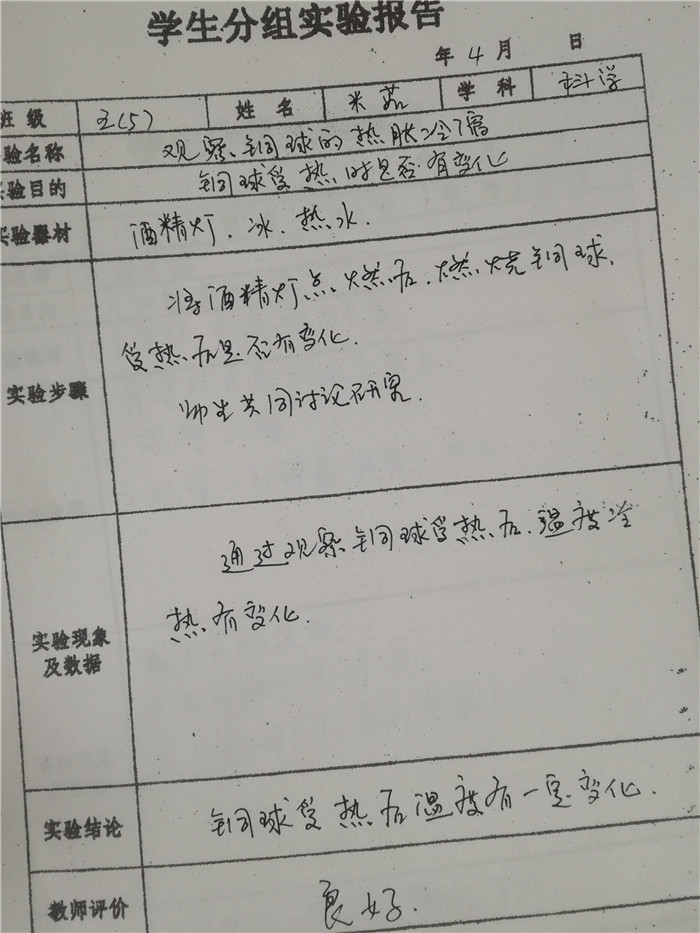 学生分组实验报告
年 4 月 日
班 级 五(5) 姓 名 米茹 学 科 科学
验名称 观察铜球的热胀冷缩
实验目的 铜球受热时是否有变化
实验器材 酒精灯、冰、热水.
将酒精灯点燃后,燃烧铜球,
受热后是否有变化.
实验步骤
师生共同讨论研究.
通过观察铜球受热后,温度冷
热有变化.
实验现象
及数据
实验结论 铜球受热后温度有一定变化.
教师评价 良好.